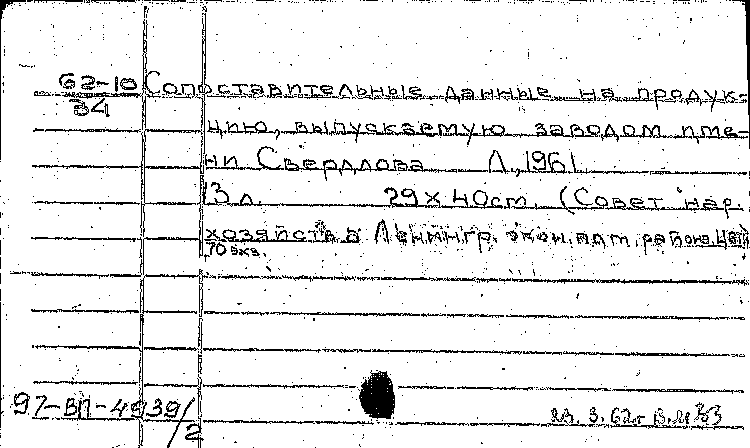 62-10 Сопоставительные данные на продук-
34
цию, выпускаемую заводом име-
ни Свердлова Л., 1961
13 л. 29 х 40см. (Совет нар.
хозяйства Ленингр. экон. адм. района.
70 экз.
97-ВП-4839/
/2
23. 3. 62г